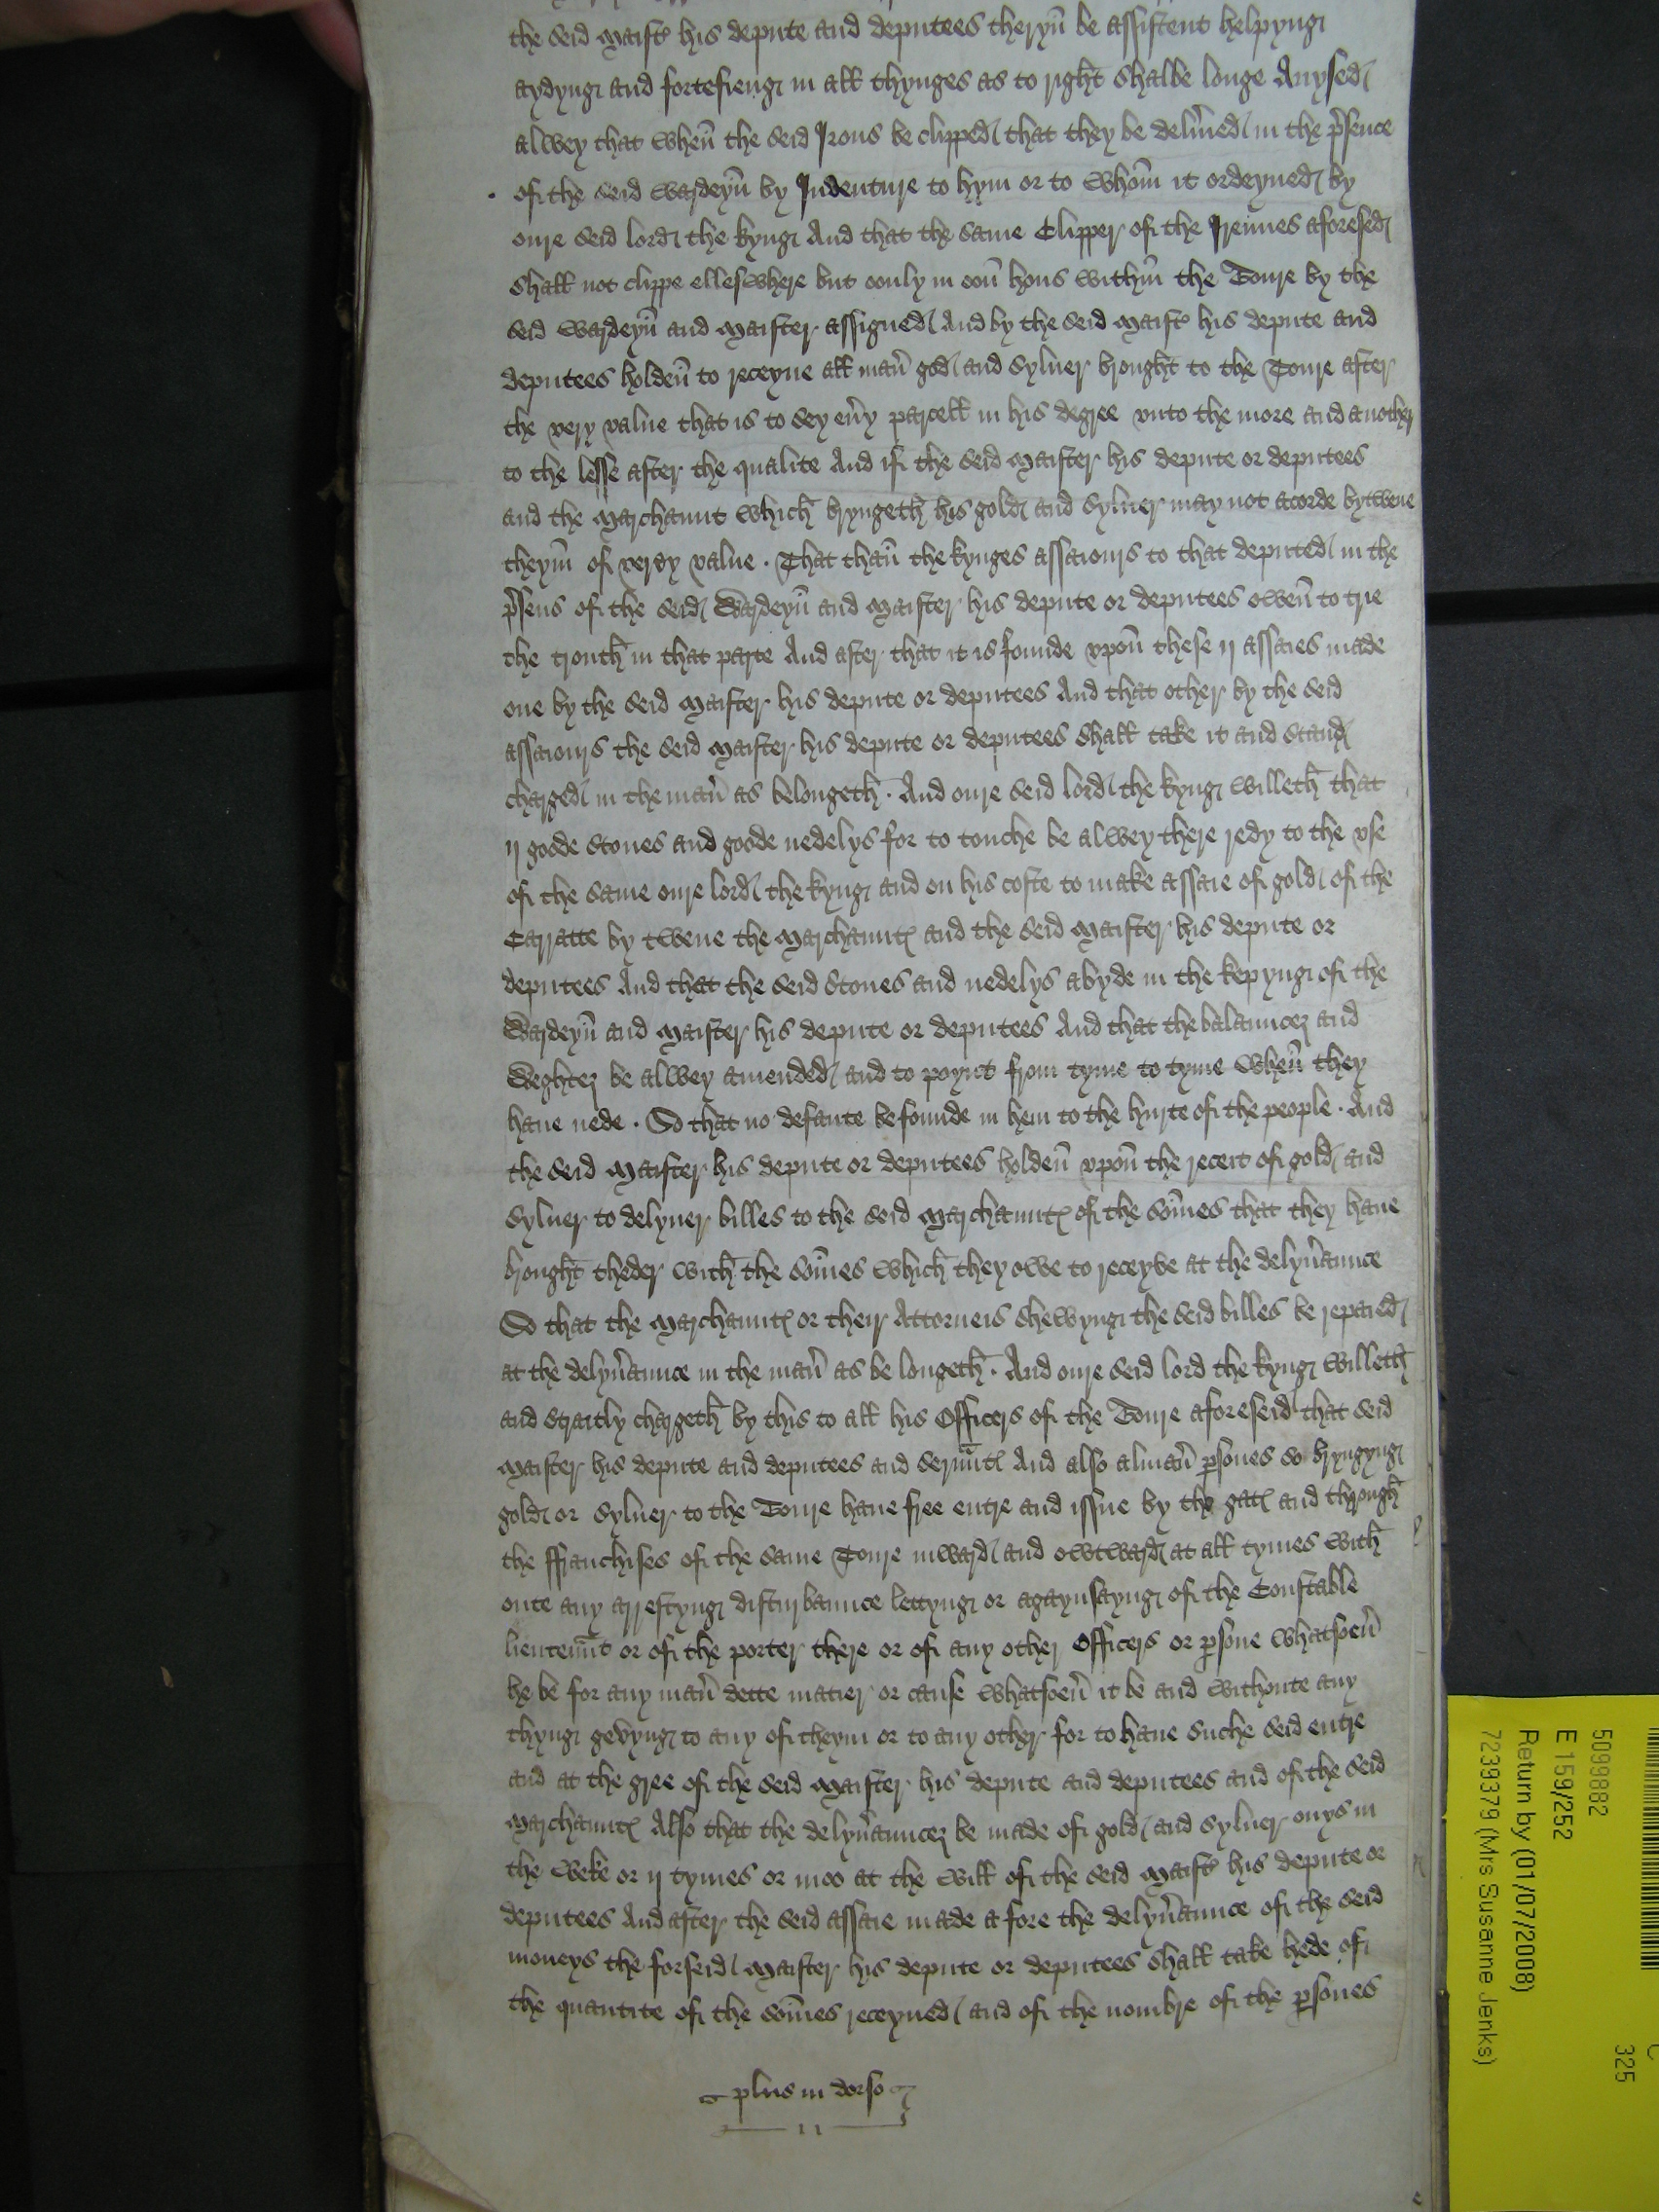 the seid Maist' his depute and deputees theryn be assistent helpyng
aydyng and fortefieng in all thynges as to right shalbe longe Avysed
alwey that when the seid Irons be clipped that they be delyu'ed in the p'sence
of the seid Wardeyn by Indenture to hym or to whom it ordeyned by
oure seid lord the kyng And that the same Clipper of the Irennes aforesed
shall not clippe elleswhere but oonly in oon hous within the Toure by the
seid wardeyn and Maister assigned And by the seid Maist' his depute and
deputees holden to receyue all man' gold and Syluer brought to the Toure after
the very value that is to sey eu'y parcell in his degree vnto the more and another
to the lesse after the qualite And if the seid Maister his depute or deputees
and the Marchaunt which bryngeth his gold and Syluer may not acorde bytwene
theym of verry value . That than the kynges assaiours to that deputed in the
p'sens of the seid Wardeyn and Maister his depute or deputees owen to trie
the trouth in that parte And after that it is founde vpon these ij assaies made
one by the seid Maister his depute or deputees And that other by the seid
assaiours the seid Maister his depute or deputees shall take it and stand
charged in the man' as belongeth . And oure seid lord the kyng willeth that
ij goode stones and goode nedelys for to touche be alwey there redy to the vse
of the same oure lord the kyng and on his coste to make assaie of gold of the
Carratte by twene the Marchauntes and the seid Maister his depute or
deputees And that the seid stones and nedelys abyde in the kepyng of the
Wardeyn and Maister his depute or deputees And that the balauncez and
Weghtez be alwey amended and to poynt from tyme to tyme when they
haue nede . So that no defaute be founde in hem to the hurte of the people . And
the seid Maister his depute or deputees holden vpon the receit of gold and
Syluer to delyuer billes to the seid Marchauntes of the somes that they haue
brought theder with the somes which they owe to receyve at the delyu'aunce
So that the Marchauntes or their Attorneis shewyng the seid billes be repaied
at the delyu'aunce in the man' as be longeth . And oure seid lord the kyng willeth
and straitly chargeth by this to all his Officers of the Toure aforeseid that seid
Maister his depute and deputees and seruntes And also alman' p'sones so bryngyng
gold or Syluer to the Toure haue free entre and issue by the gates and through
the ffraunchises of the same Toure inward and owtward at all tymes with
oute any arrestyng disturbaunce lettyng or agaynsayng of the Constable
lieutenunt or of the porter there or of any other Officers or p'sone whatsoeu'
he be for any man' dette matier or cause whatsoeu' it be and withoute any
thyng gevyng to any of theym or to any other for to haue suche seid entre
and at the gree of the seid Maister his depute and deputees and of the seid
Marchauntes Also that the delyu'auncez be made of gold and Syluer onys in
the weke or ij tymes or moo at the will of the seid Maist' his depute or
deputees And after the seid assaie made a fore the delyu'aunce of the seid
moneys the forseid Maister his depute or deputees shall take hede of
the quantite of the somes receyued and of the nombre of the p'sones
plus in dorso
5099882
E 159/252
Return by (01/07/2008)
7239379 (Mrs Susanne Jenks)
325